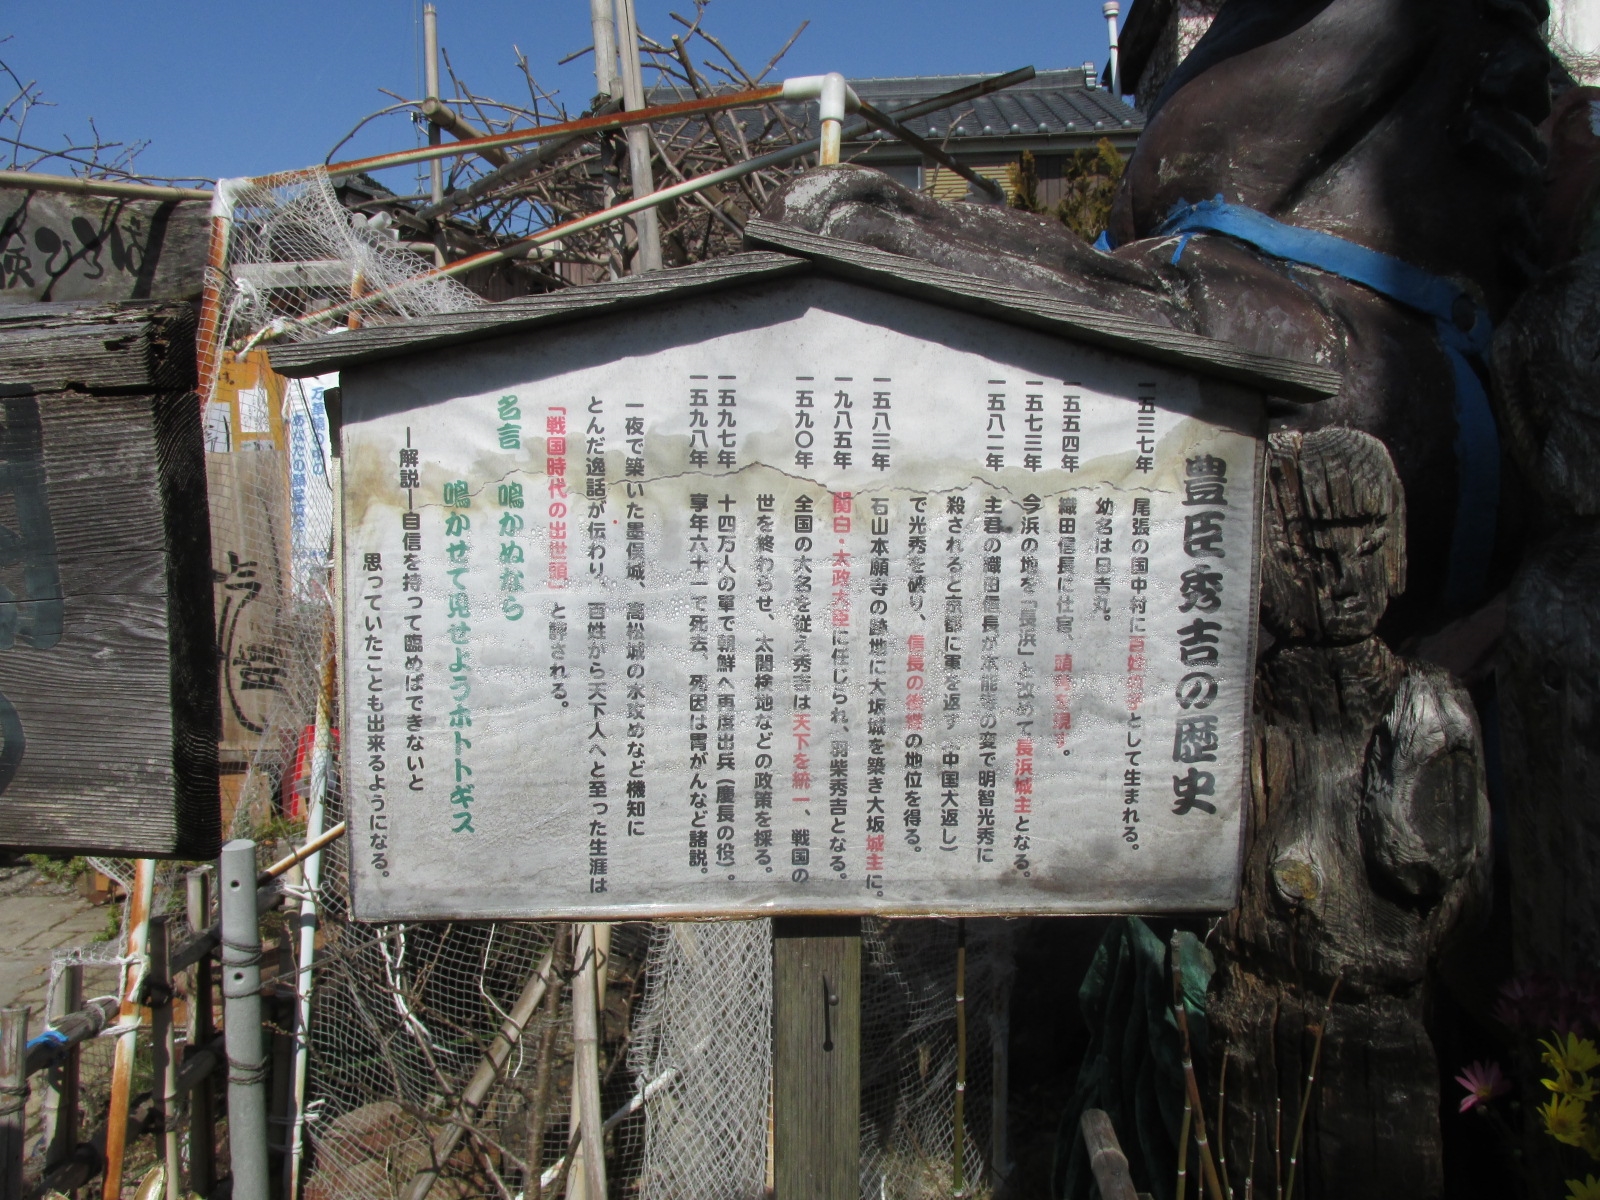 豊臣秀吉の歴史
一五三七年 尾張の国中村に百姓の子として生まれる。
幼名は日吉丸。
一五五四年 織田信長に仕官、頭角を現す。
一五七三年 今浜の地を「長浜」と改めて長浜城主となる。
一五八二年 主君の織田信長が本能寺の変で明智光秀に
殺されると京都に軍を返す(中国大返し)
で光秀を破り、信長の後継の地位を得る。
一五八三年 石山本願寺の跡地に大坂城を築き大坂城主に。
一九八五年 関白・太政大臣に任じられ、羽柴秀吉となる。
一五九〇年 全国の大名を従え秀吉は天下を統一、戦国の
世を終わらせ、太閤検地などの政策を採る。
一五九七年 十四万人の軍で朝鮮へ再度出兵(慶長の役)。
一五九八年 享年六十一で死去、死因は胃がんなど諸説。
一夜で築いた墨俣城、高松城の水攻めなど機知に
とんだ逸話が伝わり、百姓から天下人へと至った生涯は
「戦国時代の出世頭」と評される。
名言 鳴かぬなら
鳴かせて見せようホトトギス
―解説―自信を持って臨めばできないと
思っていたことも出来るようになる。
ひろば